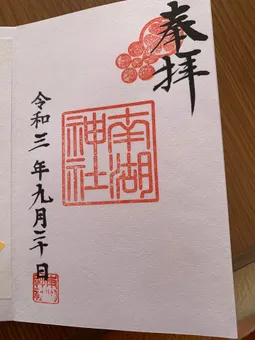 奉拝
南湖神社
令和三年九月二十日